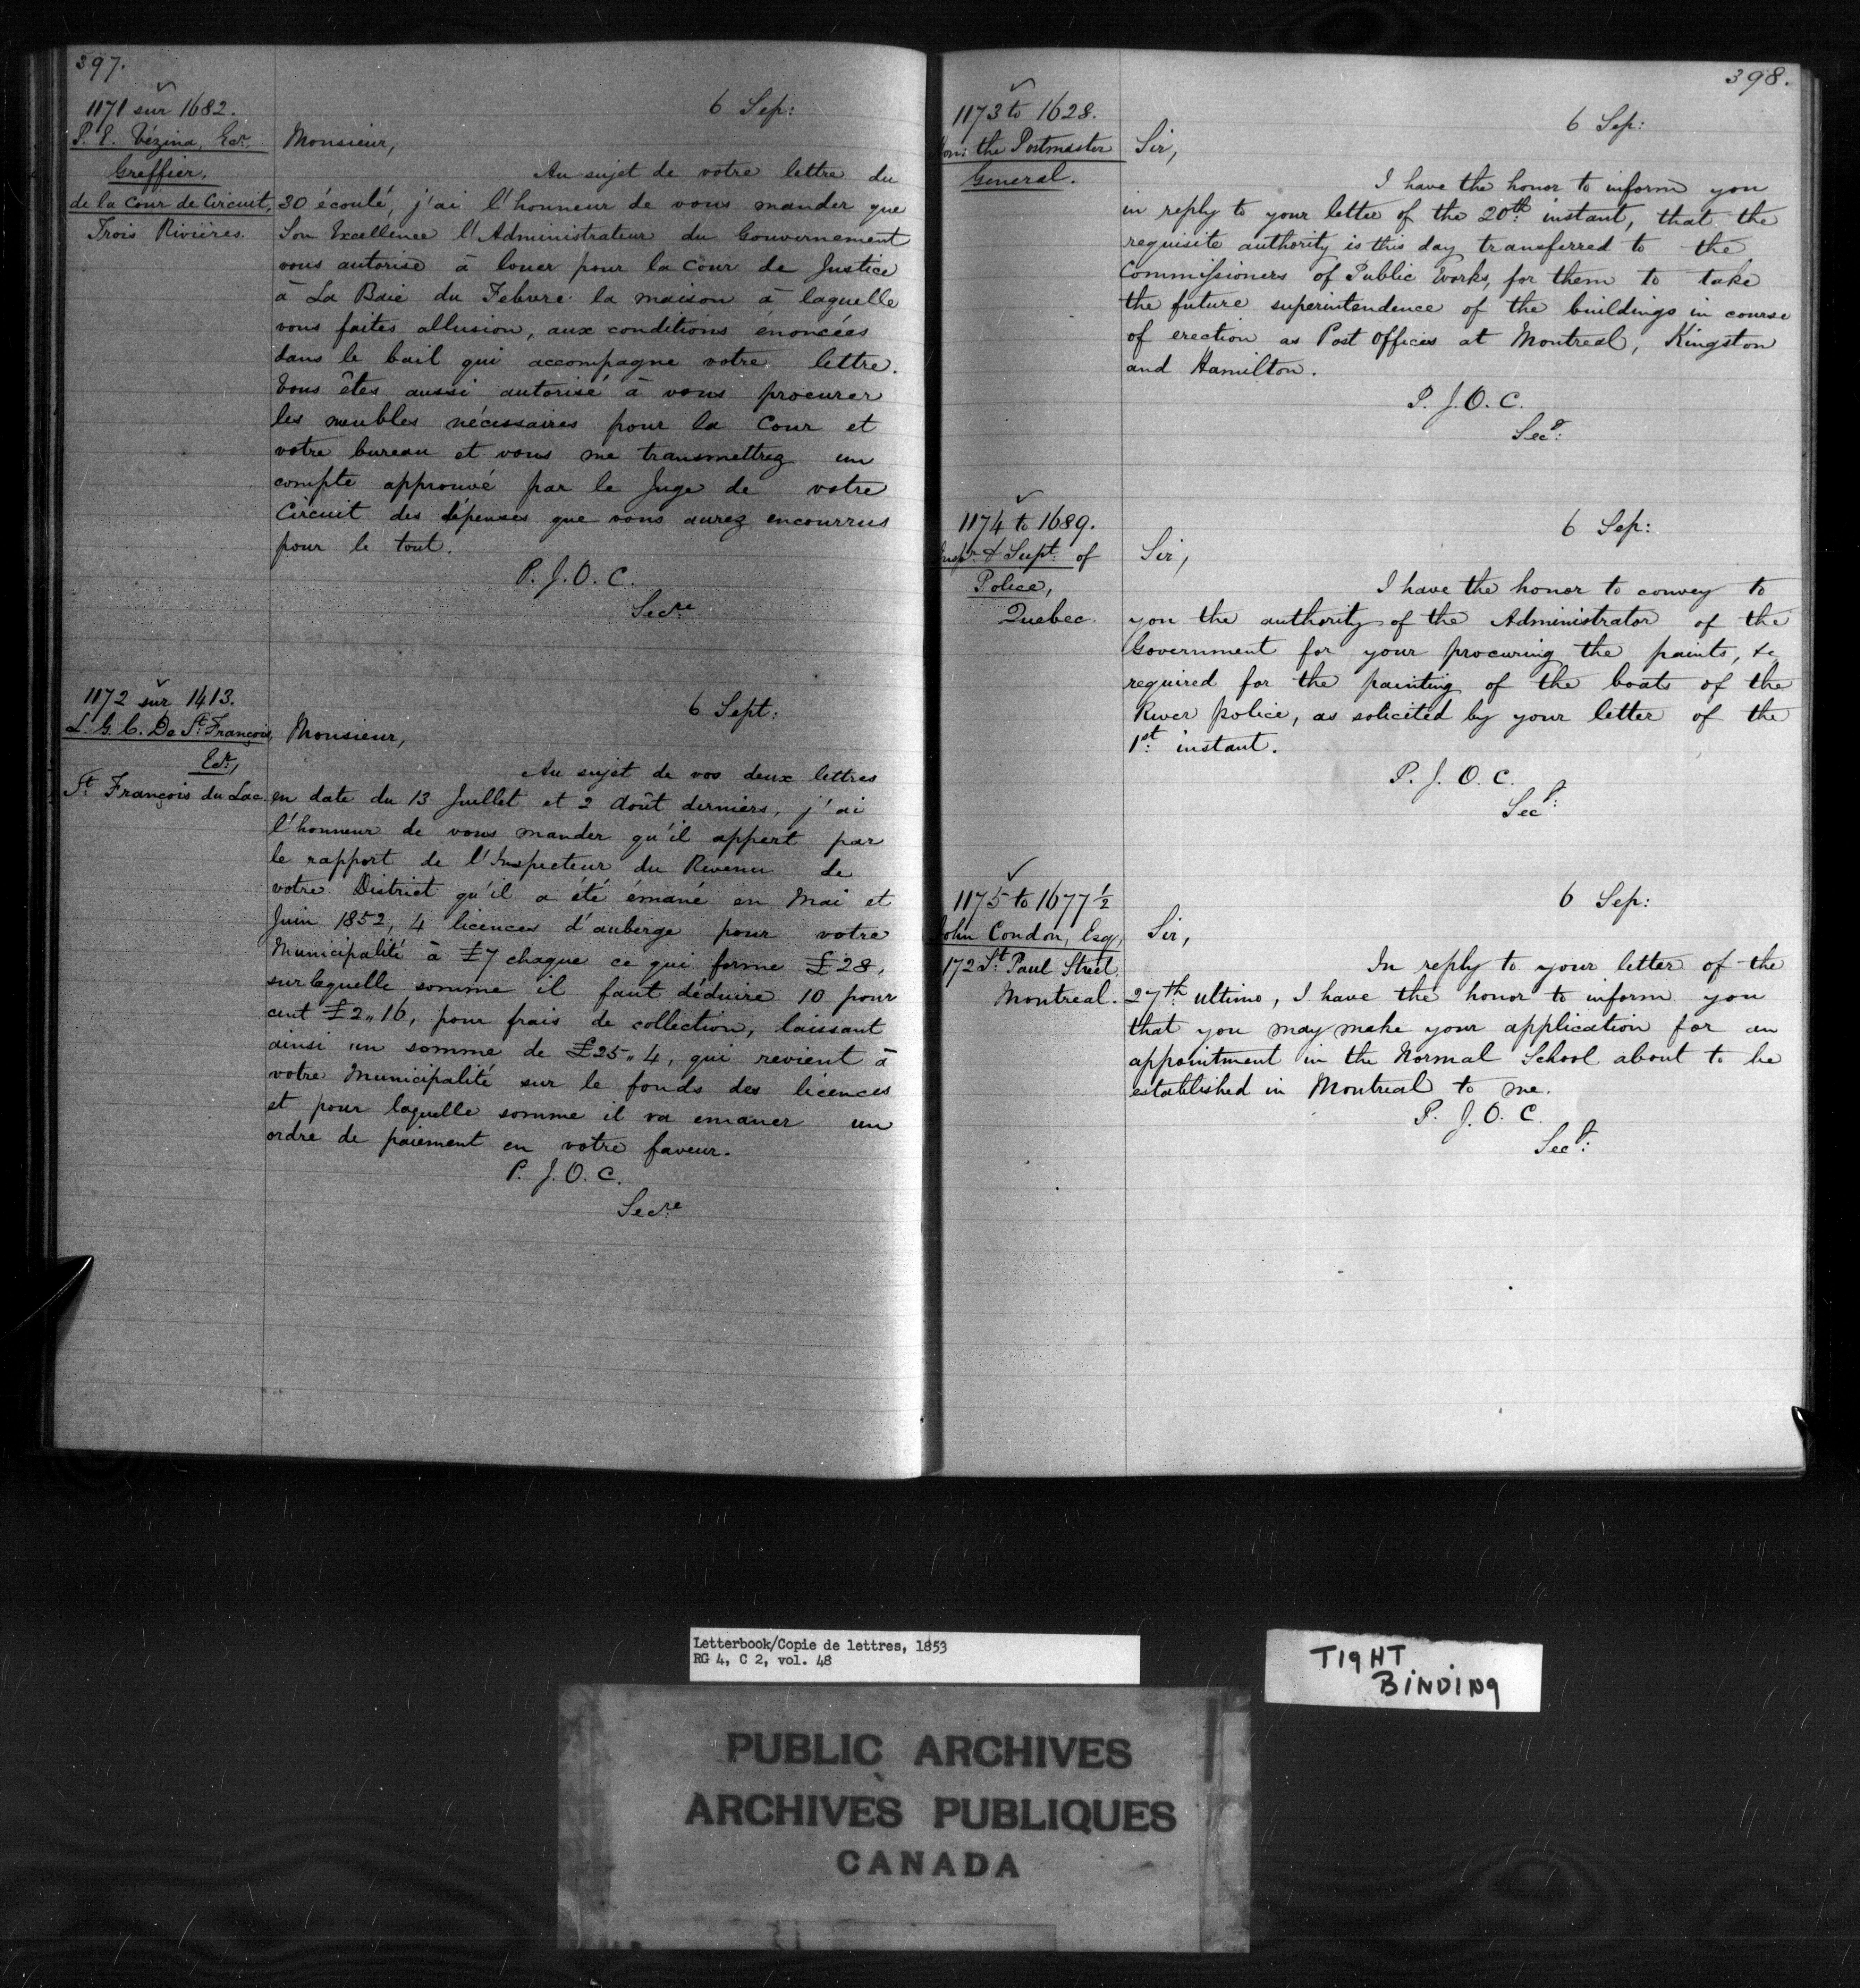 397.
1171 sur 1682.
P. E. Vézina, Ecr.
Greffier.
de la Cour de Circuit,
Trois Rivières.
6 Sep:
Monsieur,
Au sujet de votre lettre du
30 écoulé, j'ai l'honneur de vous mander que
Son Excellence l'Administrateur du Gouvernement
vous autorise à louer pour la Cour de Justice
à La Baie du Febvre la maison à laquelle
vous faites allusion, aux conditions énoncées
dans le bail qui accompagne votre lettre.
Vous êtes aussi autorisé à vous procurer
les meubles nécessaires pour la Cour et
votre bureau et vous me transmettrez un
compte approuvé par le Juge de votre
Circuit des dépenses que vous aurez encourrus
pour le tout.
P. J. O. C.
Secre
1172 sur 1413.
L. G. C. De St. François,
Ecr,
St. François du Lac
6 Sept:
Monsieur,
Au sujet de vos deux lettres
en date du 13 Juillet et 2 Août derniers, j'ai
l'honneur de vous mander qu'il appert par
le rapport de l'Inspecteur du Revenu de
votre District qu'il a été émané en Mai et
Juin 1852, 4 licences d'auberge pour votre
Municipalité à £7 chaque ce qui forme £28,
sur laquelle somme il faut déduire 10 pour
cent £2,,16, pour frais de collection, laissant
ainsi un somme de £25,,4, qui revient à
votre Municipalité sur le fonds des licences
et pour laquelle somme il va emaner un
ordre de paiement en votre faveur.
P. J. O. C.
Secre
398.
1173 to 1628.
Hon: the Postmaster
General.
6 Sep:
Sir,
I have the honor to inform you
in reply to your letter of the 20th: instant, that the
requisite authority is this day transferred to the
Commissioners of Public Works, for them to take
the future superintendence of the buildings in course
of erection as Post Offices at Montreal, Kingston
and Hamilton.
P. J. O. C.
Secy:
1174 to 1689.
Inspr. & Supt. of
Police,
Quebec.
6 Sep:
Sir,
I have the honor to convey to
you the authority of the Administrator of the
Government for your procuring the paints, &c
required for the painting of the boats of the
River police, as solicited by your letter of the
1st: instant.
P. J. O. C.
Secy:
1175 to 1677 1/2
John Condon, Esq,
172 St. Paul Street,
Montreal.
6 Sep:
Sir,
In reply to your letter of the
27th ultimo, I have the honor to inform you
that you may make your application for an
appointment in the Normal School about to be
established in Montreal to me.
P. J. O. C.
Secy:
Letterbook/Copie de lettres, 1853
RG 4, C 2, vol. 48
TIGHT
BINDING
PUBLIC ARCHIVES
ARCHIVES PUBLIQUES
CANADA